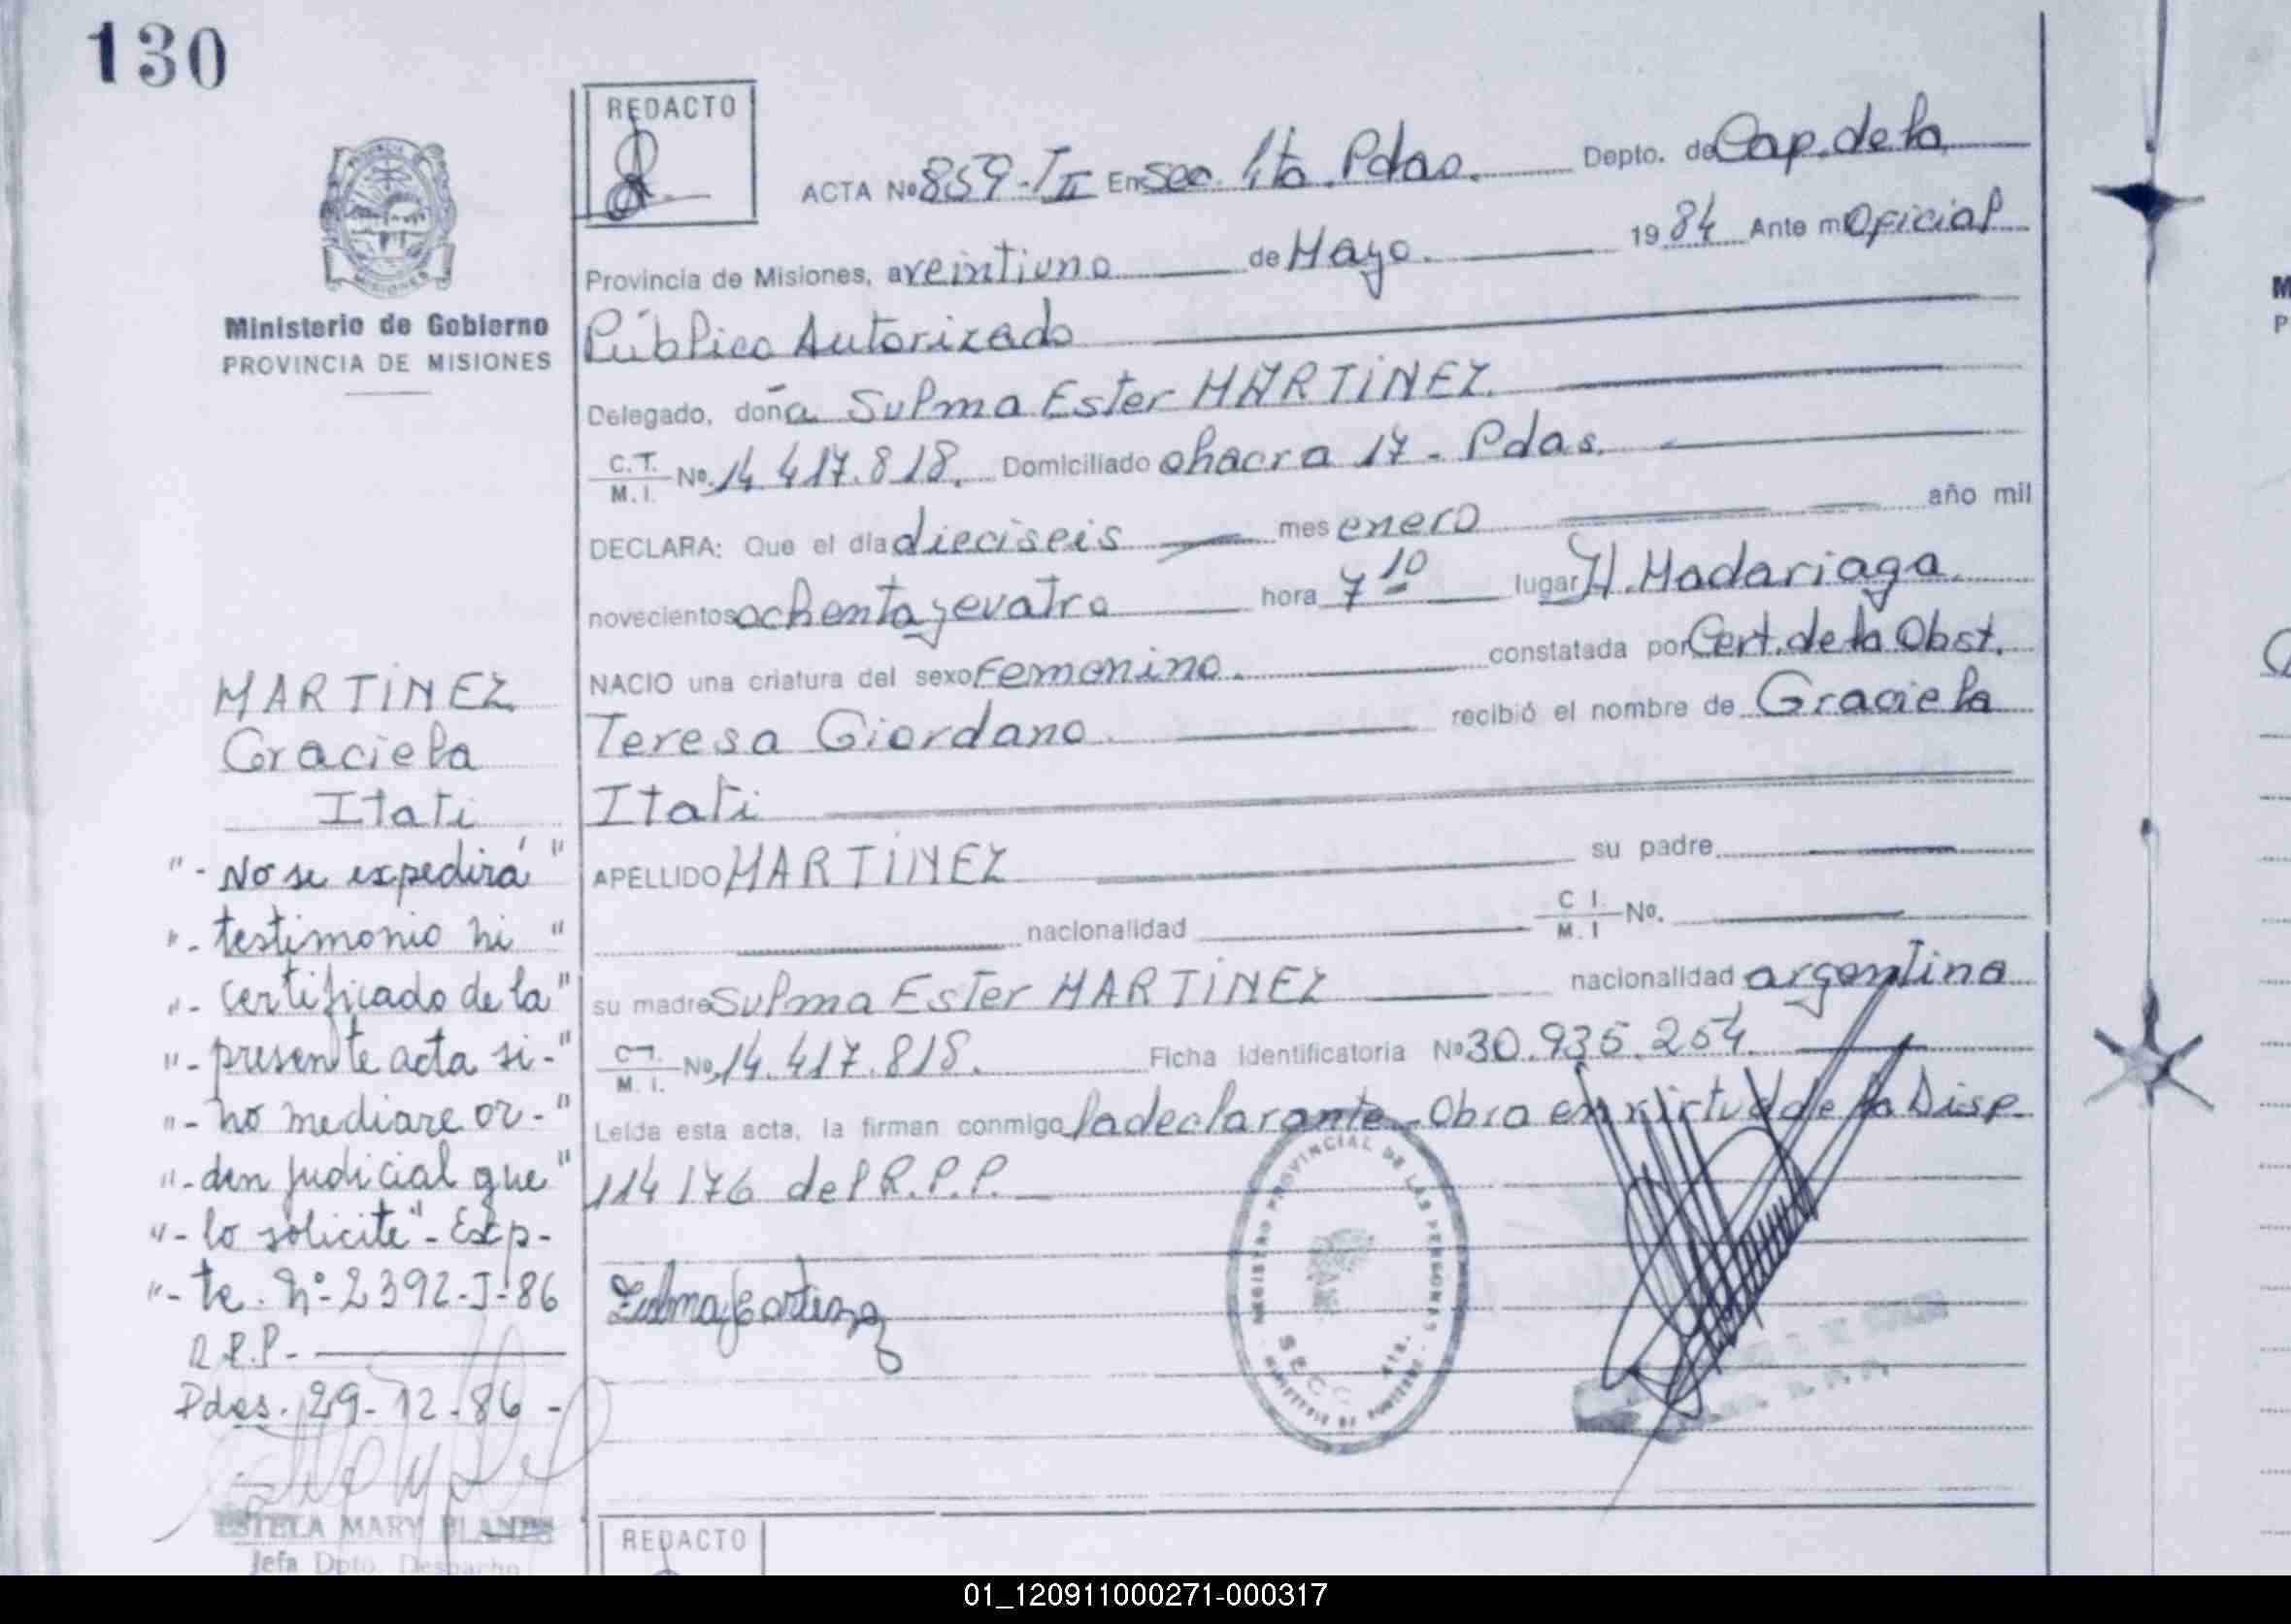 130
REDACTO
ACTA Nº 859-T II En sec. 4ta. Pdas. Depto. de Cap. de la
Provincia de Misiones, a veintiuno de Mayo. 1984 Ante mi Oficial
Público Autorizado
Delegado, doña Sulma Ester MARTINEZ.
C.T. M.I. Nº. 14.417.818. Domiciliado chacra 17 - Pdas.
DECLARA: Que el día dieciseis mes enero año mil
novecientos ochenta y cuatro hora 7 10 lugar H. Madariaga.
NACIO una criatura del sexo Femenino. constatada por Cert. de la Obst.
Teresa Giordano recibió el nombre de Graciela
Itati
APELLIDO MARTINEZ su padre
nacionalidad C I. M. I Nº.
su madre Sulma Ester MARTINEZ nacionalidad argentina
C.I. M. I. Nº 14.417.818. Ficha identificatoria Nº 30.935.254.
Leída esta acta, la firman conmigo la declarante - Obra en virtud de la Disp.
114/76 del R.P.P.
REGISTRO PROVINCIAL DE LAS PERSONAS
SECC. 4ta.
MINISTERIO DE GOBIERNO
Ministerio de Gobierno
PROVINCIA DE MISIONES
MARTINEZ
Graciela
Itati
"- No se expedirá "
"- testimonio ni "
"- certificado de la "
"- presente acta si- "
"- no mediare or- "
"- den judicial que "
"- lo solicite" - Exp-
"- te. Nº 2392-J-86
R.P.P.-
Pdas. 29-12-86 -
ESTELA MARY BLANES
Jefa Dpto. Despacho
REDACTO
01_120911000271-000317